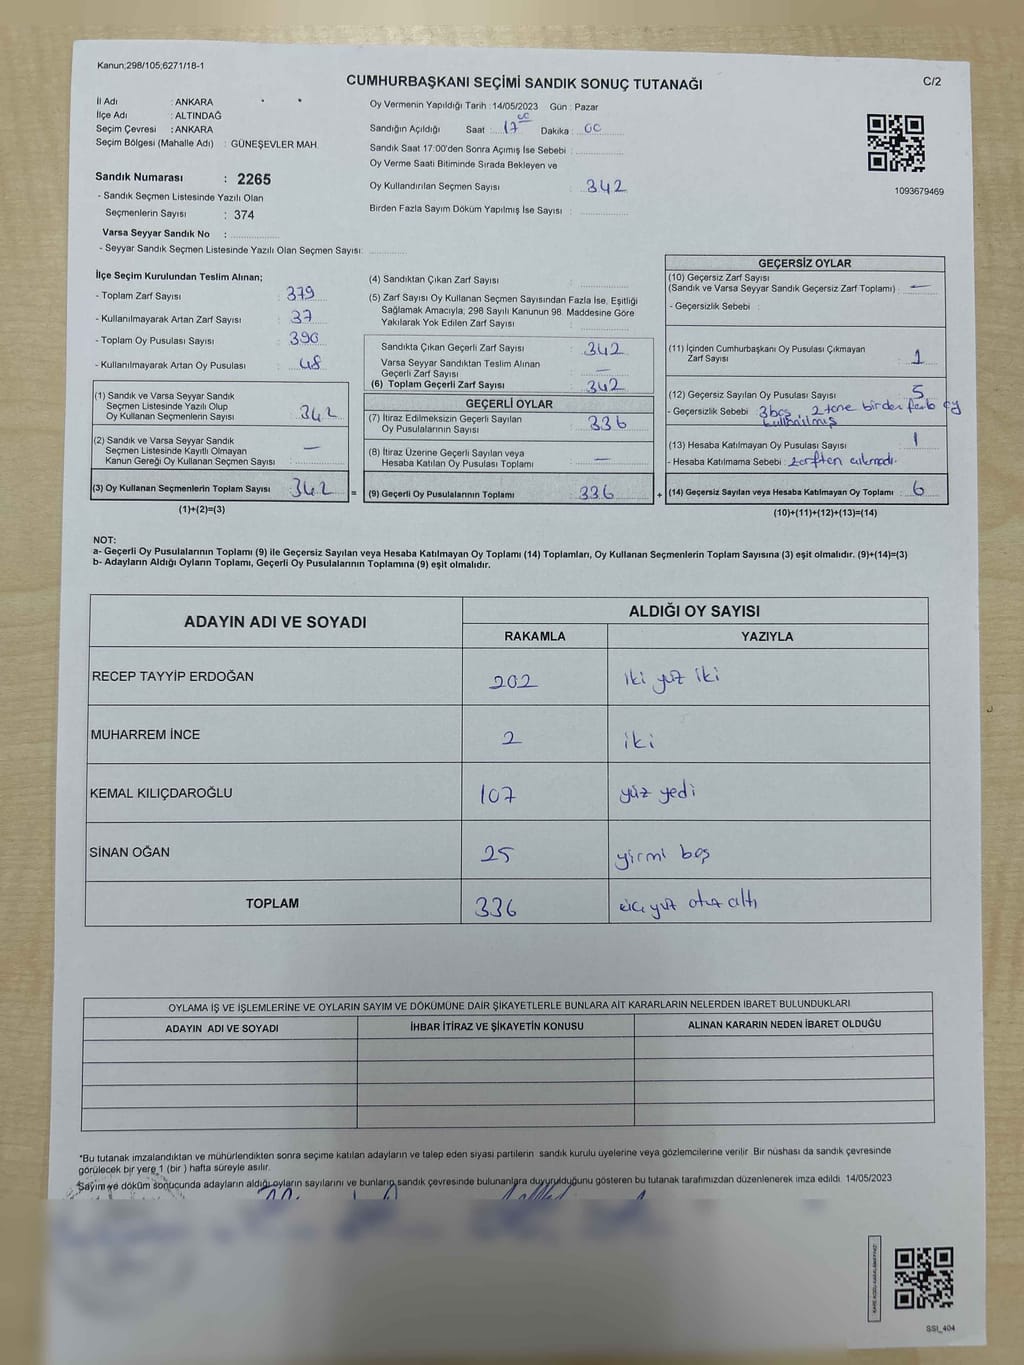 Kanun;298/105;6271/18-1
CUMHURBAŞKANI SEÇİMİ SANDIK SONUÇ TUTANAĞI
C/2
İl Adı : ANKARA
İlçe Adı : ALTINDAĞ
Seçim Çevresi : ANKARA
Seçim Bölgesi (Mahalle Adı) : GÜNEŞEVLER MAH.
Oy Vermenin Yapıldığı Tarih : 14/05/2023 Gün : Pazar
Sandığın Açıldığı Saat : 17 00 Dakika : 00
Sandık Saat 17:00'den Sonra Açımış İse Sebebi :
Oy Verme Saati Bitiminde Sırada Bekleyen ve
Oy Kullandırılan Seçmen Sayısı : 342
Birden Fazla Sayım Döküm Yapılmış İse Sayısı :
1093679469
Sandık Numarası : 2265
- Sandık Seçmen Listesinde Yazılı Olan
Seçmenlerin Sayısı : 374
Varsa Seyyar Sandık No :
- Seyyar Sandık Seçmen Listesinde Yazılı Olan Seçmen Sayısı:
İlçe Seçim Kurulundan Teslim Alınan;
- Toplam Zarf Sayısı : 379
- Kullanılmayarak Artan Zarf Sayısı : 37
- Toplam Oy Pusulası Sayısı : 390
- Kullanılmayarak Artan Oy Pusulası : 48
(1) Sandık ve Varsa Seyyar Sandık
Seçmen Listesinde Yazılı Olup
Oy Kullanan Seçmenlerin Sayısı : 342
(2) Sandık ve Varsa Seyyar Sandık
Seçmen Listesinde Kayıtlı Olmayan
Kanun Gereği Oy Kullanan Seçmen Sayısı : —
(3) Oy Kullanan Seçmenlerin Toplam Sayısı : 342
(1)+(2)=(3)
=
(4) Sandıktan Çıkan Zarf Sayısı :
(5) Zarf Sayısı Oy Kullanan Seçmen Sayısından Fazla İse, Eşitliği
Sağlamak Amacıyla; 298 Sayılı Kanunun 98. Maddesine Göre
Yakılarak Yok Edilen Zarf Sayısı :
Sandıkta Çıkan Geçerli Zarf Sayısı : 342
Varsa Seyyar Sandıktan Teslim Alınan
Geçerli Zarf Sayısı : —
(6) Toplam Geçerli Zarf Sayısı : 342
GEÇERLİ OYLAR
(7) İtiraz Edilmeksizin Geçerli Sayılan
Oy Pusulalarının Sayısı : 336
(8) İtiraz Üzerine Geçerli Sayılan veya
Hesaba Katılan Oy Pusulası Toplamı : —
(9) Geçerli Oy Pusulalarının Toplamı : 336
+
GEÇERSİZ OYLAR
(10) Geçersiz Zarf Sayısı
(Sandık ve Varsa Seyyar Sandık Geçersiz Zarf Toplamı) : —
- Geçersizlik Sebebi :
(11) İçinden Cumhurbaşkanı Oy Pusulası Çıkmayan
Zarf Sayısı : 1
(12) Geçersiz Sayılan Oy Pusulası Sayısı : 5
- Geçersizlik Sebebi : 3 boş 2 tane birden fazla oy
kullanılmış
(13) Hesaba Katılmayan Oy Pusulası Sayısı : 1
- Hesaba Katılmama Sebebi : zarftan çıkmadı.
(14) Geçersiz Sayılan veya Hesaba Katılmayan Oy Toplamı : 6
(10)+(11)+(12)+(13)=(14)
NOT:
a- Geçerli Oy Pusulalarının Toplamı (9) ile Geçersiz Sayılan veya Hesaba Katılmayan Oy Toplamı (14) Toplamları, Oy Kullanan Seçmenlerin Toplam Sayısına (3) eşit olmalıdır. (9)+(14)=(3)
b- Adayların Aldığı Oyların Toplamı, Geçerli Oy Pusulalarının Toplamına (9) eşit olmalıdır.
ADAYIN ADI VE SOYADI
ALDIĞI OY SAYISI
RAKAMLA YAZIYLA
RECEP TAYYİP ERDOĞAN 202 iki yüz iki
MUHARREM İNCE 2 iki
KEMAL KILIÇDAROĞLU 107 yüz yedi
SİNAN OĞAN 25 yirmi beş
TOPLAM 336 üç yüz otuz altı
OYLAMA İŞ VE İŞLEMLERİNE VE OYLARIN SAYIM VE DÖKÜMÜNE DAİR ŞİKAYETLERLE BUNLARA AİT KARARLARIN NELERDEN İBARET BULUNDUKLARI
ADAYIN ADI VE SOYADI İHBAR İTİRAZ VE ŞİKAYETİN KONUSU ALINAN KARARIN NEDEN İBARET OLDUĞU
*Bu tutanak imzalandıktan ve mühürlendikten sonra seçime katılan adayların ve talep eden siyasi partilerin sandık kurulu üyelerine veya gözlemcilerine verilir. Bir nüshası da sandık çevresinde
görülecek bir yere 1 (bir ) hafta süreyle asılır.
Sayım ve döküm sonucunda adayların aldığı oyların sayılarını ve bunların sandık çevresinde bulunanlara duyurulduğunu gösteren bu tutanak tarafımızdan düzenlenerek imza edildi. 14/05/2023
SSI_404